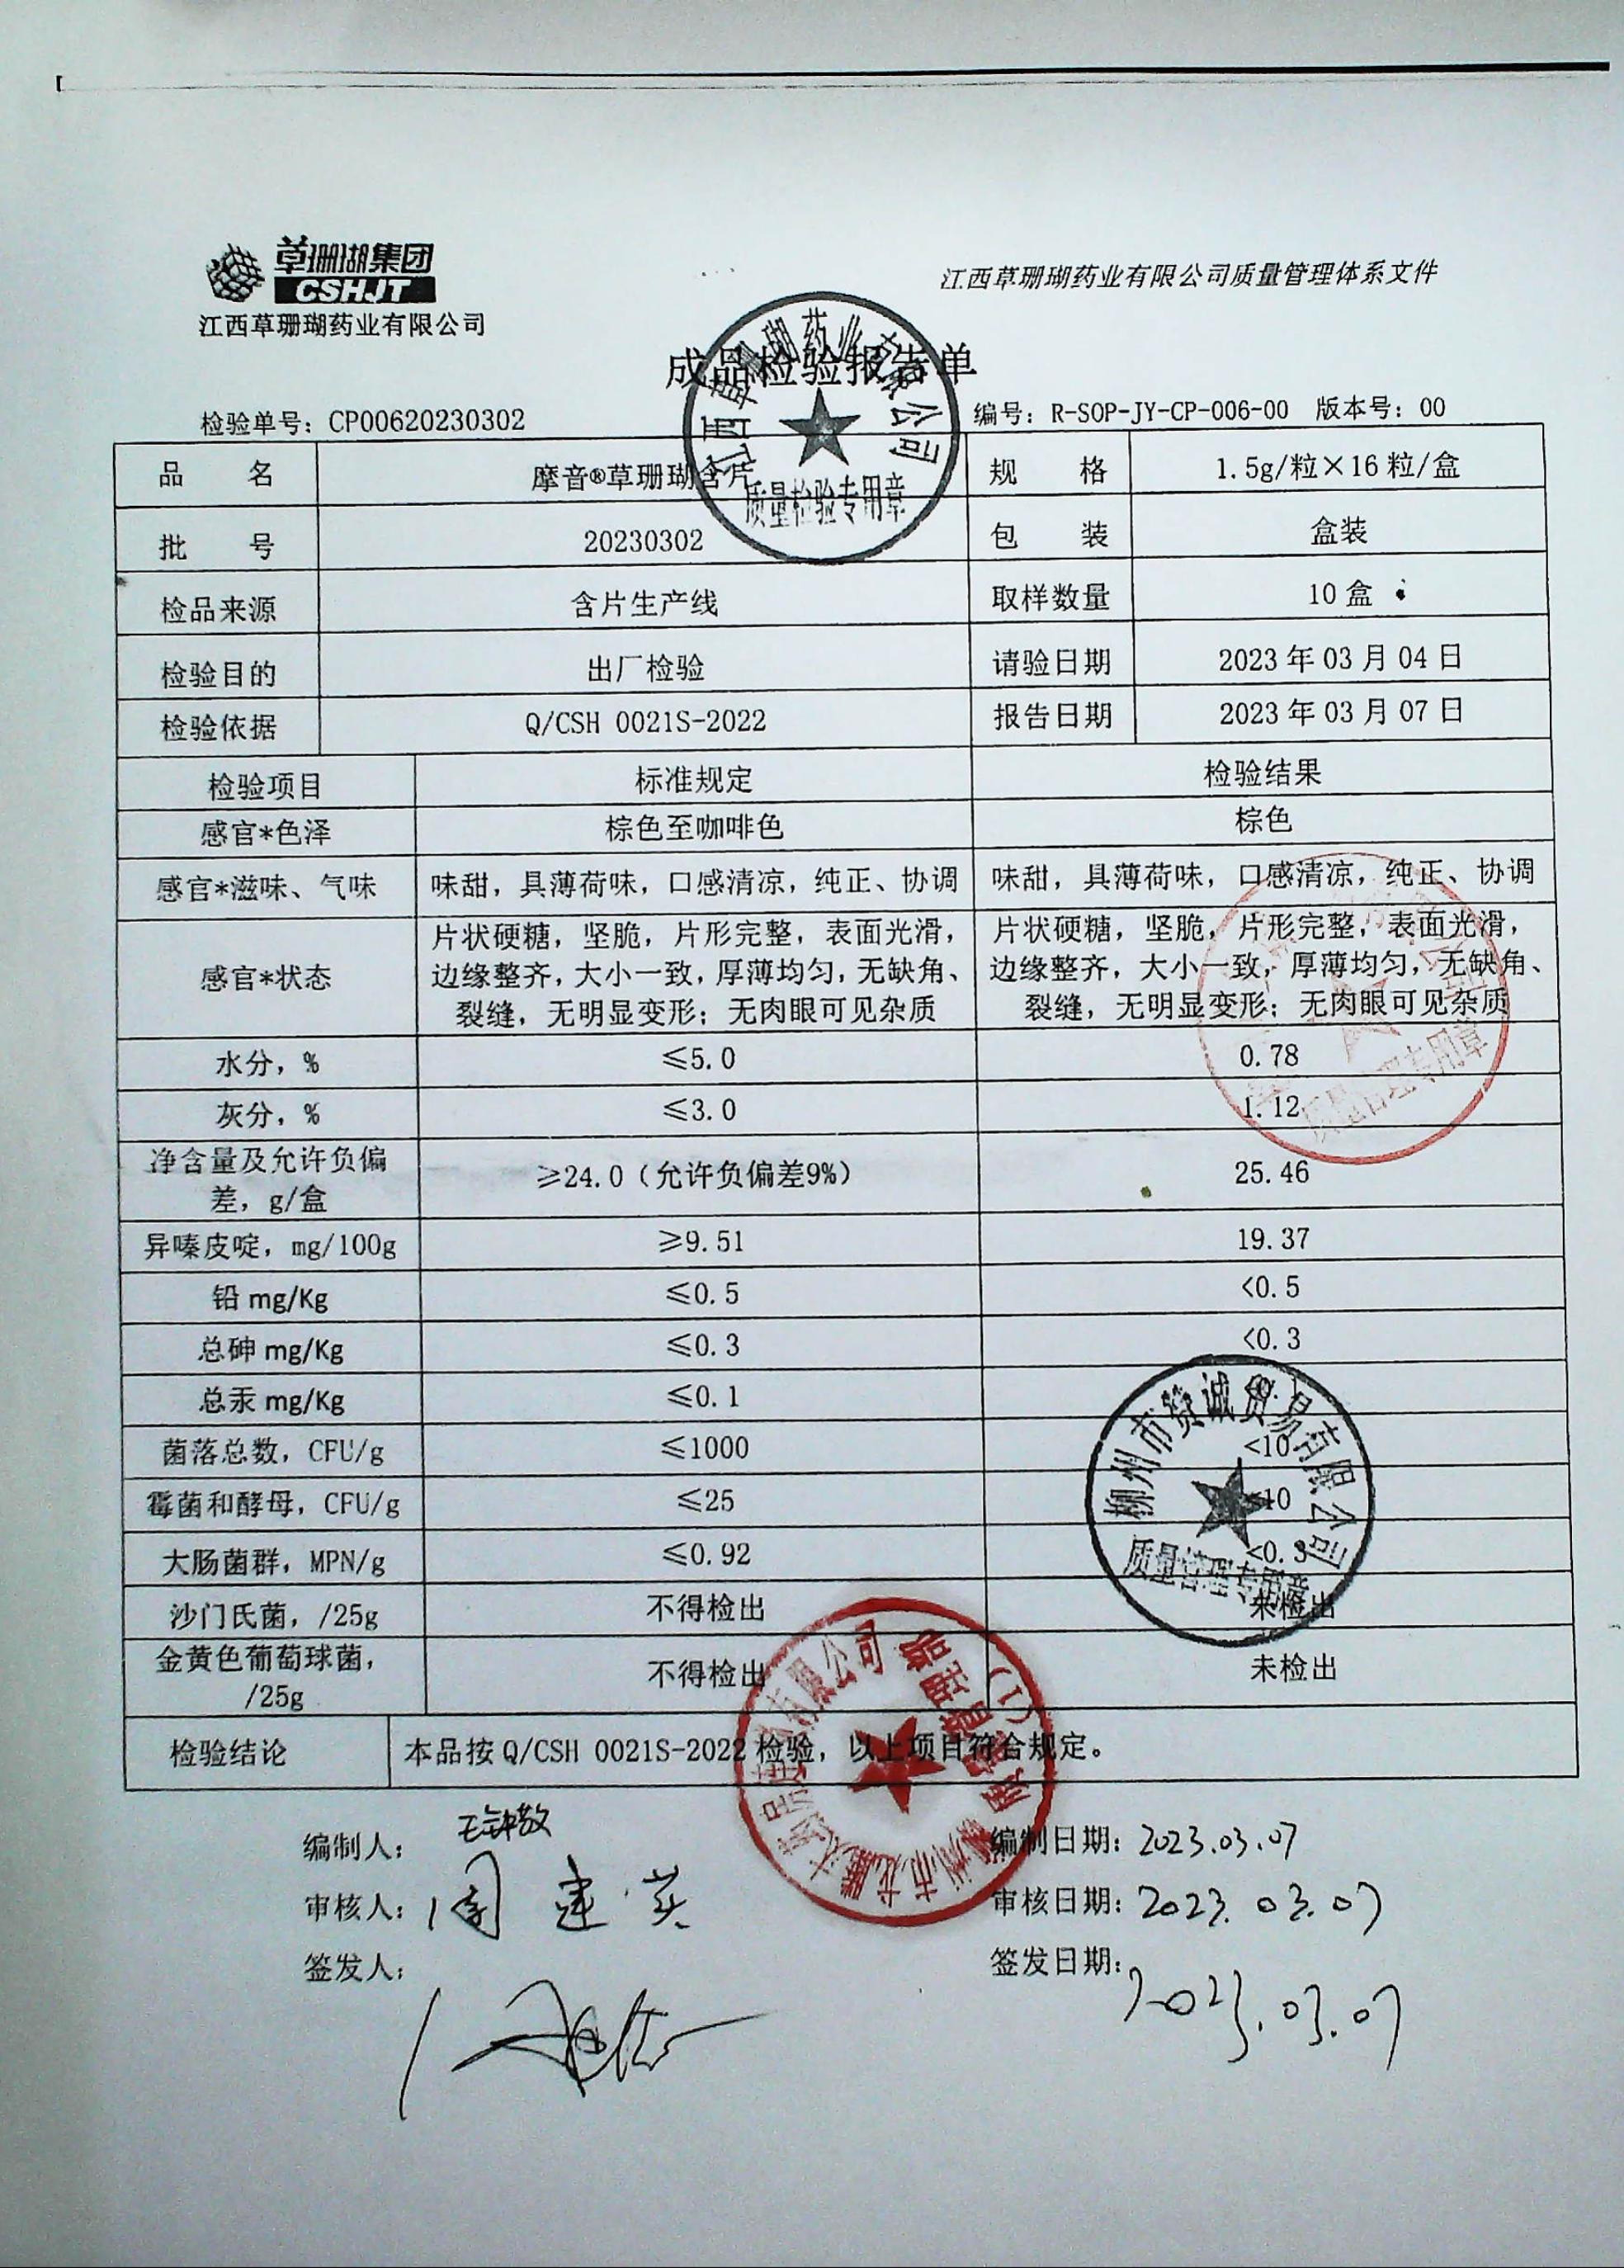 草珊瑚集团
CSHJT
江西草珊瑚药业有限公司
江西草珊瑚药业有限公司质量管理体系文件
成品检验报告单
江西草珊瑚药业有限公司
质量检验专用章
检验单号：CP00620230302
编号：R-SOP-JY-CP-006-00 版本号：00
品 名 摩音®草珊瑚含片 规 格 1.5g/粒×16粒/盒
批 号 20230302 包 装 盒装
检品来源 含片生产线 取样数量 10盒
检验目的 出厂检验 请验日期 2023年03月04日
检验依据 Q/CSH 0021S-2022 报告日期 2023年03月07日
检验项目 标准规定 检验结果
感官*色泽 棕色至咖啡色 棕色
感官*滋味、气味 味甜，具薄荷味，口感清凉，纯正、协调 味甜，具薄荷味，口感清凉，纯正、协调
感官*状态 片状硬糖，坚脆，片形完整，表面光滑，边缘整齐，大小一致，厚薄均匀，无缺角、裂缝，无明显变形；无肉眼可见杂质 片状硬糖，坚脆，片形完整，表面光滑，边缘整齐，大小一致，厚薄均匀，无缺角、裂缝，无明显变形；无肉眼可见杂质
水分，% ≤5.0 0.78
灰分，% ≤3.0 1.12
质量管理专用章
净含量及允许负偏差，g/盒 ≥24.0（允许负偏差9%） 25.46
异嗪皮啶，mg/100g ≥9.51 19.37
铅 mg/Kg ≤0.5 <0.5
总砷 mg/Kg ≤0.3 <0.3
总汞 mg/Kg ≤0.1
菌落总数，CFU/g ≤1000 <10
霉菌和酵母，CFU/g ≤25 <10
大肠菌群，MPN/g ≤0.92 <0.3
沙门氏菌，/25g 不得检出 未检出
金黄色葡萄球菌，/25g 不得检出 未检出
柳州市赞诚贸易有限公司
质量管理专用章
检验结论 本品按 Q/CSH 0021S-2022 检验，以上项目符合规定。
(1)
编制人：
编制日期：2023.03.07
审核人：周建英
审核日期：2023.03.07
签发人：
签发日期：2023.03.07